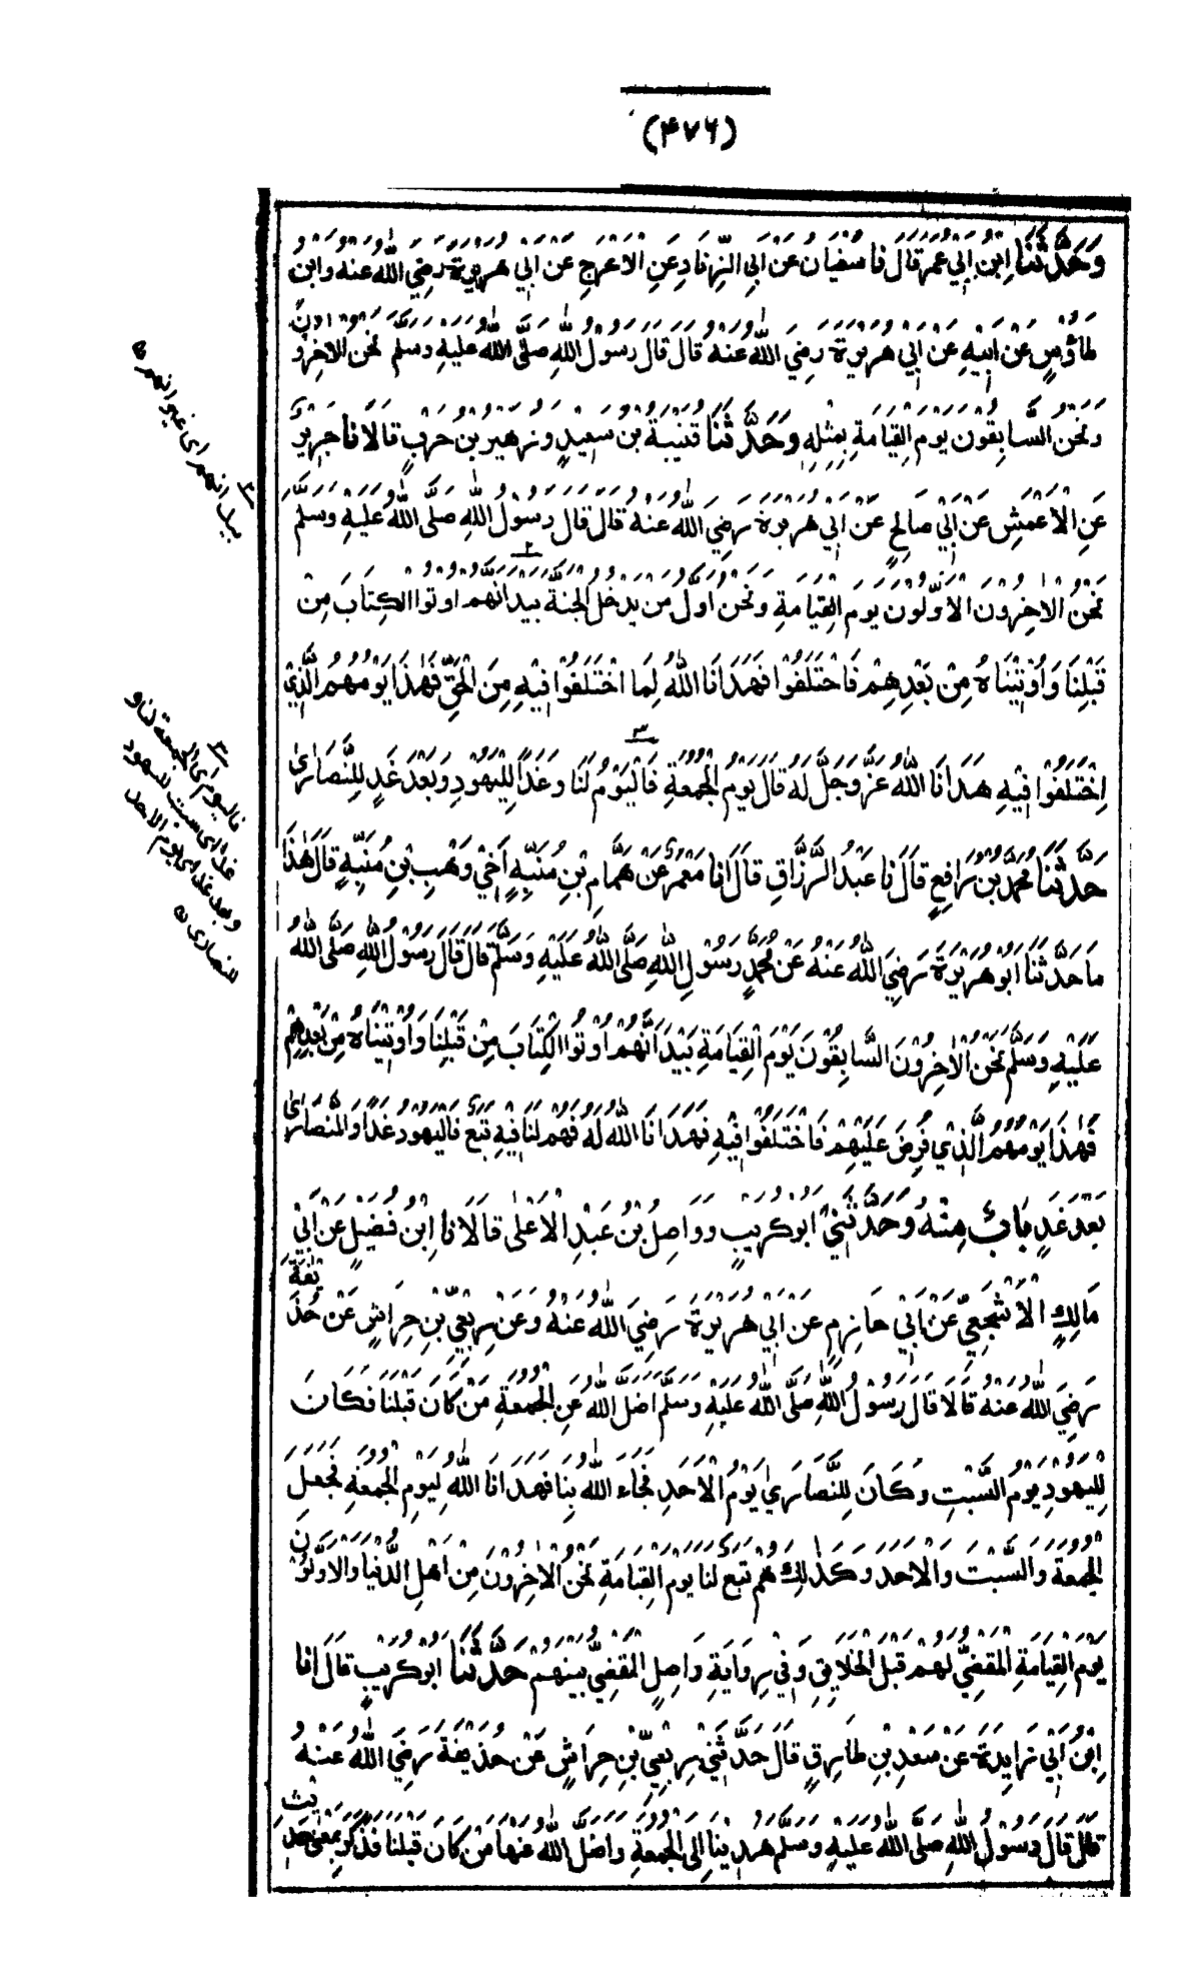 (۴۷۶)
وَحَدَّثَنَا ابْنُ اَبِيْ عُمَرَ قَالَ نَا سُفْيَانُ عَنْ اَبِي الزِّنَادِ عَنِ الْاَعْرَجِ عَنْ اَبِيْ هُرَيْرَةَ رَضِيَ اللّٰهُ عَنْهُ وَابْنُ
طَاؤُسٍ عَنْ اَبِيْهِ عَنْ اَبِيْ هُرَيْرَةَ رَضِيَ اللّٰهُ عَنْهُ قَالَ قَالَ رَسُوْلُ اللّٰهِ صَلَّى اللّٰهُ عَلَيْهِ وَسَلَّمَ نَحْنُ الْاٰخِرُوْنَ
وَنَحْنُ السَّابِقُوْنَ يَوْمَ الْقِيَامَةِ بِمِثْلِهٖ وَحَدَّثَنَا قُتَيْبَةُ بْنُ سَعِيْدٍ وَزُهَيْرُ بْنُ حَرْبٍ قَالَا نَا جَرِيْرٌ
عَنِ الْاَعْمَشِ عَنْ اَبِيْ صَالِحٍ عَنْ اَبِيْ هُرَيْرَةَ رَضِيَ اللّٰهُ عَنْهُ قَالَ قَالَ رَسُوْلُ اللّٰهِ صَلَّى اللّٰهُ عَلَيْهِ وَسَلَّمَ
نَحْنُ الْاٰخِرُوْنَ الْاَوَّلُوْنَ يَوْمَ الْقِيَامَةِ وَنَحْنُ اَوَّلُ مَنْ يَدْخُلُ الْجَنَّةَ بَيْدَ٢ اَنَّهُمْ اُوْتُوا الْكِتَابَ مِنْ
قَبْلِنَا وَاُوْتِيْنَاهُ مِنْ بَعْدِهِمْ فَاخْتَلَفُوْا فَهَدَانَا اللّٰهُ لِمَا اخْتَلَفُوْا فِيْهِ مِنَ الْحَقِّ فَهٰذَا يَوْمُهُمُ الَّذِيْ
اِخْتَلَفُوْا فِيْهِ هَدَانَا اللّٰهُ عَزَّ وَجَلَّ لَهٗ قَالَ يَوْمُ الْجُمُعَةِ فَالْيَوْمُ٣ لَنَا وَغَدًا لِلْيَهُوْدِ وَبَعْدَ غَدٍ لِلنَّصَارٰى
حَدَّثَنَا مُحَمَّدُ بْنُ رَافِعٍ قَالَ نَا عَبْدُ الرَّزَّاقِ قَالَ اَنَا مَعْمَرٌ عَنْ هَمَّامِ بْنِ مُنَبِّهٍ اَخِيْ وَهْبِ بْنِ مُنَبِّهٍ قَالَ هٰذَا
مَا حَدَّثَنَا اَبُوْ هُرَيْرَةَ رَضِيَ اللّٰهُ عَنْهُ عَنْ مُحَمَّدٍ رَسُوْلِ اللّٰهِ صَلَّى اللّٰهُ عَلَيْهِ وَسَلَّمَ قَالَ قَالَ رَسُوْلُ اللّٰهِ صَلَّى اللّٰهُ
عَلَيْهِ وَسَلَّمَ نَحْنُ الْاٰخِرُوْنَ السَّابِقُوْنَ يَوْمَ الْقِيَامَةِ بَيْدَ اَنَّهُمْ اُوْتُوا الْكِتَابَ مِنْ قَبْلِنَا وَاُوْتِيْنَاهُ مِنْ بَعْدِهِمْ
فَهٰذَا يَوْمُهُمُ الَّذِيْ فُرِضَ عَلَيْهِمْ فَاخْتَلَفُوْا فِيْهِ فَهَدَانَا اللّٰهُ لَهٗ فَهُمْ لَنَا فِيْهِ تَبَعٌ فَالْيَهُوْدُ غَدًا وَالنَّصَارٰى
بَعْدَ غَدٍ بَابٌ مِنْهُ وَحَدَّثَنِيْ اَبُوْ كُرَيْبٍ وَوَاصِلُ بْنُ عَبْدِ الْاَعْلٰى قَالَا نَا ابْنُ فُضَيْلٍ عَنْ اَبِيْ
مَالِكٍ الْاَشْجَعِيِّ عَنْ اَبِيْ حَازِمٍ عَنْ اَبِيْ هُرَيْرَةَ رَضِيَ اللّٰهُ عَنْهُ وَعَنْ رِبْعِيِّ بْنِ حِرَاشٍ عَنْ حُذَيْفَةَ
رَضِيَ اللّٰهُ عَنْهُ قَالَا قَالَ رَسُوْلُ اللّٰهِ صَلَّى اللّٰهُ عَلَيْهِ وَسَلَّمَ اَضَلَّ اللّٰهُ عَنِ الْجُمُعَةِ مَنْ كَانَ قَبْلَنَا فَكَانَ
لِلْيَهُوْدِ يَوْمُ السَّبْتِ وَكَانَ لِلنَّصَارٰى يَوْمُ الْاَحَدِ فَجَاءَ اللّٰهُ بِنَا فَهَدَانَا اللّٰهُ لِيَوْمِ الْجُمُعَةِ فَجَعَلَ
الْجُمُعَةَ وَالسَّبْتَ وَالْاَحَدَ وَكَذٰلِكَ هُمْ تَبَعٌ لَنَا يَوْمَ الْقِيَامَةِ نَحْنُ الْاٰخِرُوْنَ مِنْ اَهْلِ الدُّنْيَا وَالْاَوَّلُوْنَ
يَوْمَ الْقِيَامَةِ الْمَقْضِيُّ لَهُمْ قَبْلَ الْخَلَائِقِ وَفِيْ رِوَايَةِ وَاصِلٍ الْمَقْضِيُّ بَيْنَهُمْ حَدَّثَنَا اَبُوْ كُرَيْبٍ قَالَ اَنَا
ابْنُ اَبِيْ زَائِدَةَ عَنْ سَعْدِ بْنِ طَارِقٍ قَالَ حَدَّثَنِيْ رِبْعِيُّ بْنُ حِرَاشٍ عَنْ حُذَيْفَةَ رَضِيَ اللّٰهُ عَنْهُ
قَالَ قَالَ رَسُوْلُ اللّٰهِ صَلَّى اللّٰهُ عَلَيْهِ وَسَلَّمَ هُدِيْنَا اِلَى الْجُمُعَةِ وَاَضَلَّ اللّٰهُ عَنْهَا مَنْ كَانَ قَبْلَنَا فَذَكَرَ بِمَعْنٰى حَدِيْثِ
٢ بيد انهم اى غير انهم
٣ فاليوم اى الجمعة لنا و
غدا اى سبت لليهود
وبعد غد اى يوم الاحد
للنصارى